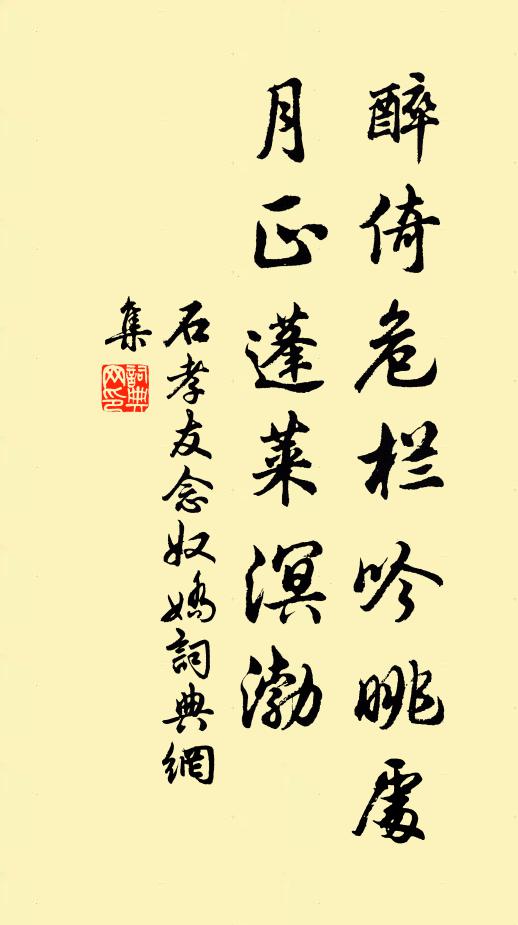 醉倚危栏吟眺處
月正蓬萊溟渤
石孝友念奴嬌詞典網
集
詞典
网印